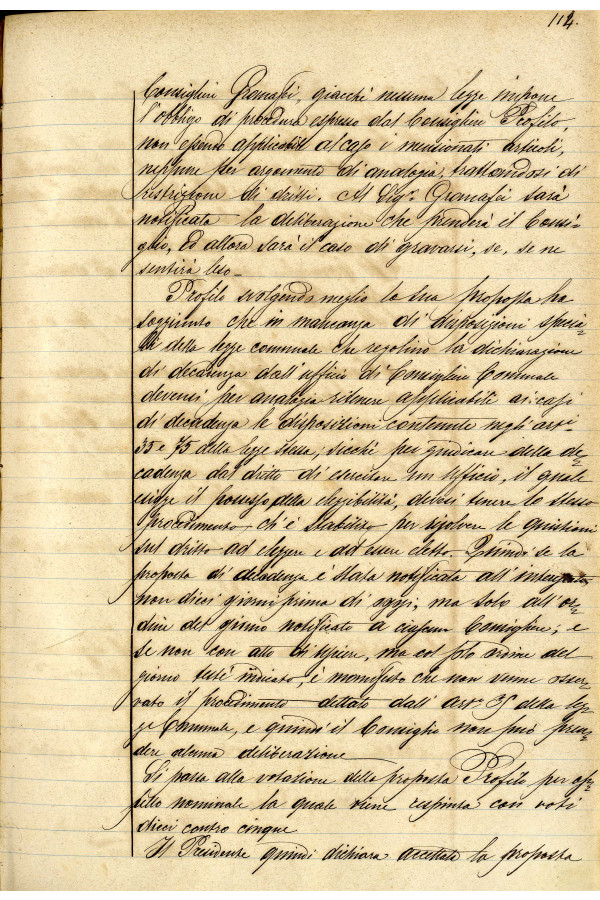 114.
Consiglier Gramassi, giacchè nessuna legge impone
l'obbligo di procedura espresso dal Consiglier Profilo,
non essendo applicabili al caso i menzionati articoli,
neppure per argomento di analogia, trattandosi di
restrizione di dritti. Al Sigr. Gramassi sarà
notificata la deliberazione che prenderà il Consi-
glio, ed allora sarà il caso di gravarsi, se, se ne
sentirà leso –
Profilo svolgendo meglio la sua proposta ha
soggiunto che in mancanza di disposizioni specia-
li della legge comunale che regolino la dichiarazione
di decadenza dall'ufficio di Consiglier Comunale
devensi per analogia ritenere applicabili ai casi
di decadenza le disposizioni contenute negli arti-
35 e 75 della legge stessa; sicchè per giudicare della de-
cadenza dal dritto di esercitare un ufficio, il quale
esige il possesso della elegibilità, devesi tenere lo stesso
procedimento ch'è stabilito per risolvere le quistioni
sul dritto ad elegere e ad essere eletto. Quindi se la
proposta di decadenza è stata notificata all'interessato
non dieci giorni prima di oggi; ma solo all'or-
dine del giorno notificato a ciascun Consigliere; e
se non con atto di usciere, ma col solo ordine del
giorno testè indicato, è manifesto che non venne osser-
vato il procedimento dettato dall'art. 35 della leg-
ge Comunale, e quindi il Consiglio non può pren-
dere alcuna deliberazione
Si passa alla votazione della proposta Profilo per ap-
pello nominale la quale viene respinta con voti
dieci contro cinque
Il Presidente quindi dichiara accettata la proposta